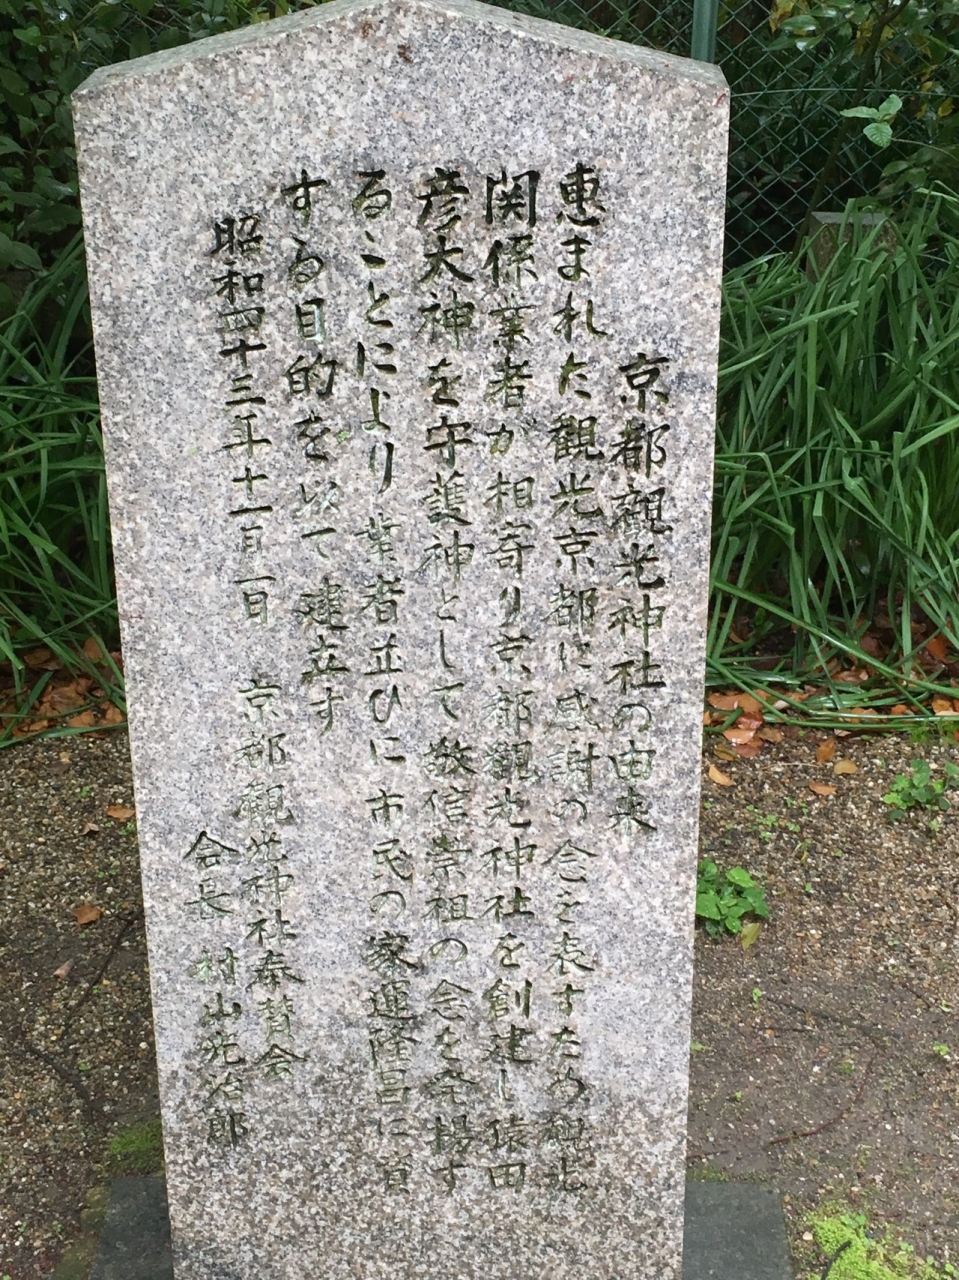 京都観光神社の由来
恵まれた観光京都に感謝の念を表すため観光
関係業者が相寄り京都観光神社を創建し猿田
彦大神を守護神として敬信崇祖の念を発揚す
ることにより業者並ひに市民の家運隆昌に資
する目的を以て建立す
昭和四十三年十一月一日 京都観光神社奉賛会
会長 村山元治郎